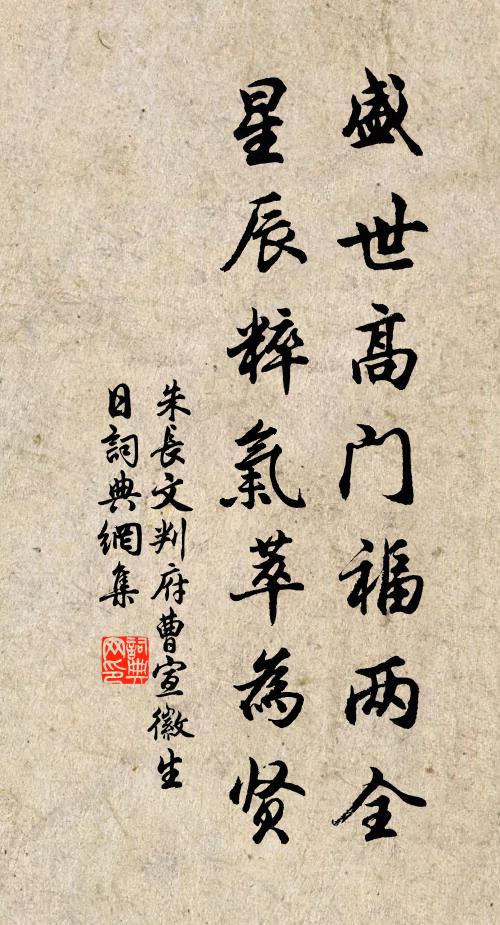 盛世高门福两全
星辰粹氣萃為贤
朱長文判府曹宣徽生
日詞典網集
詞典
网印